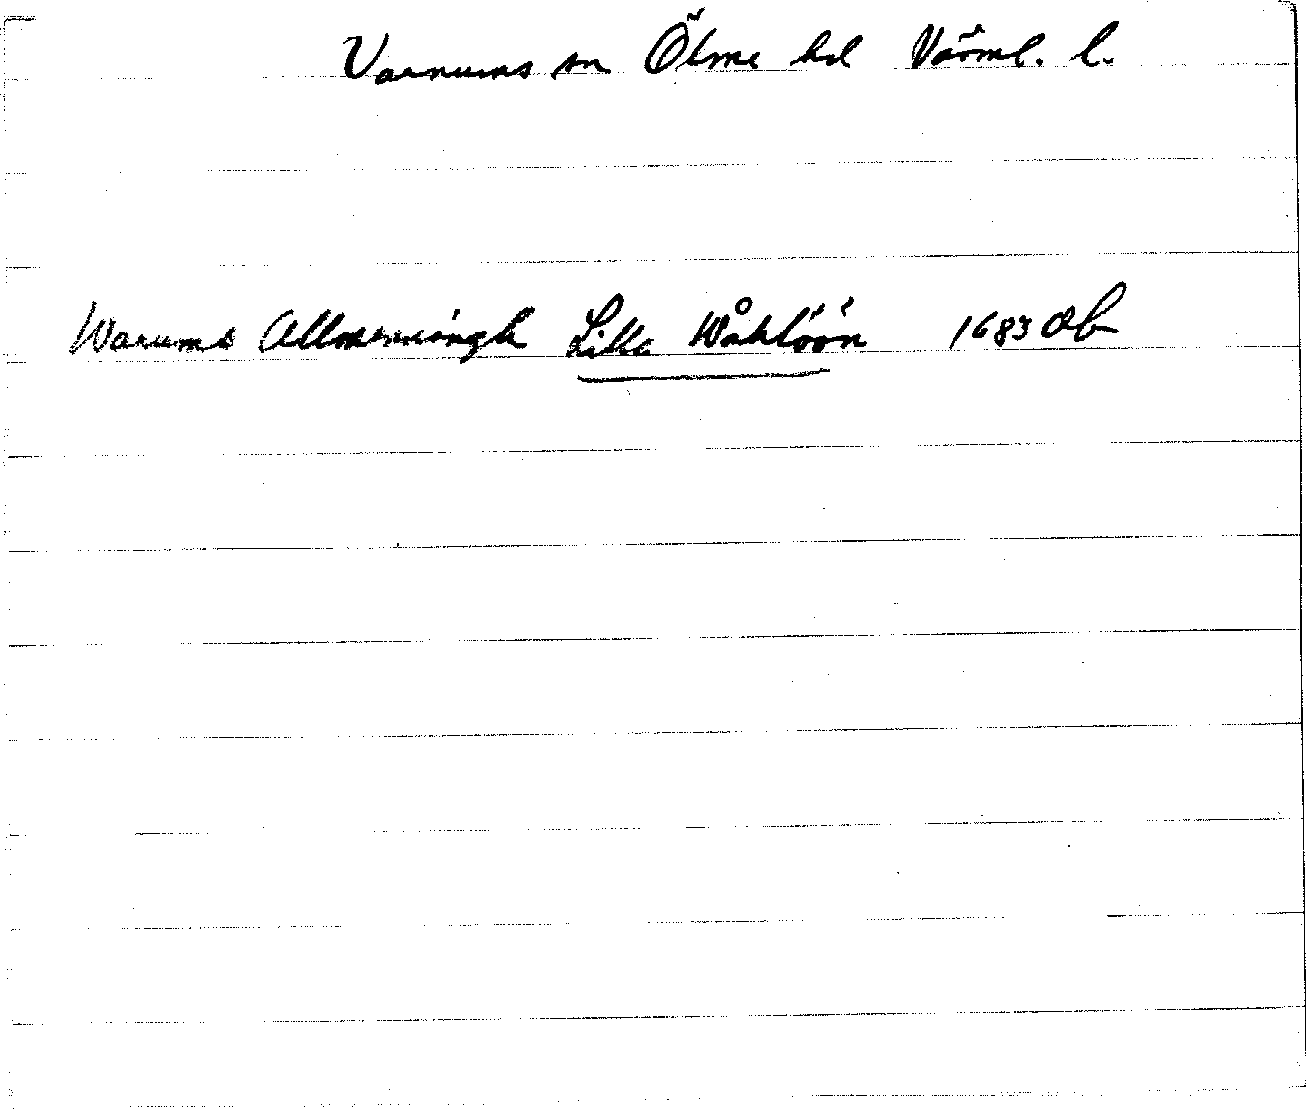 Varnums sn Ölme hd Värml. l.
Warums Allmenningh Lilla Wåhlöön 1683 Ob